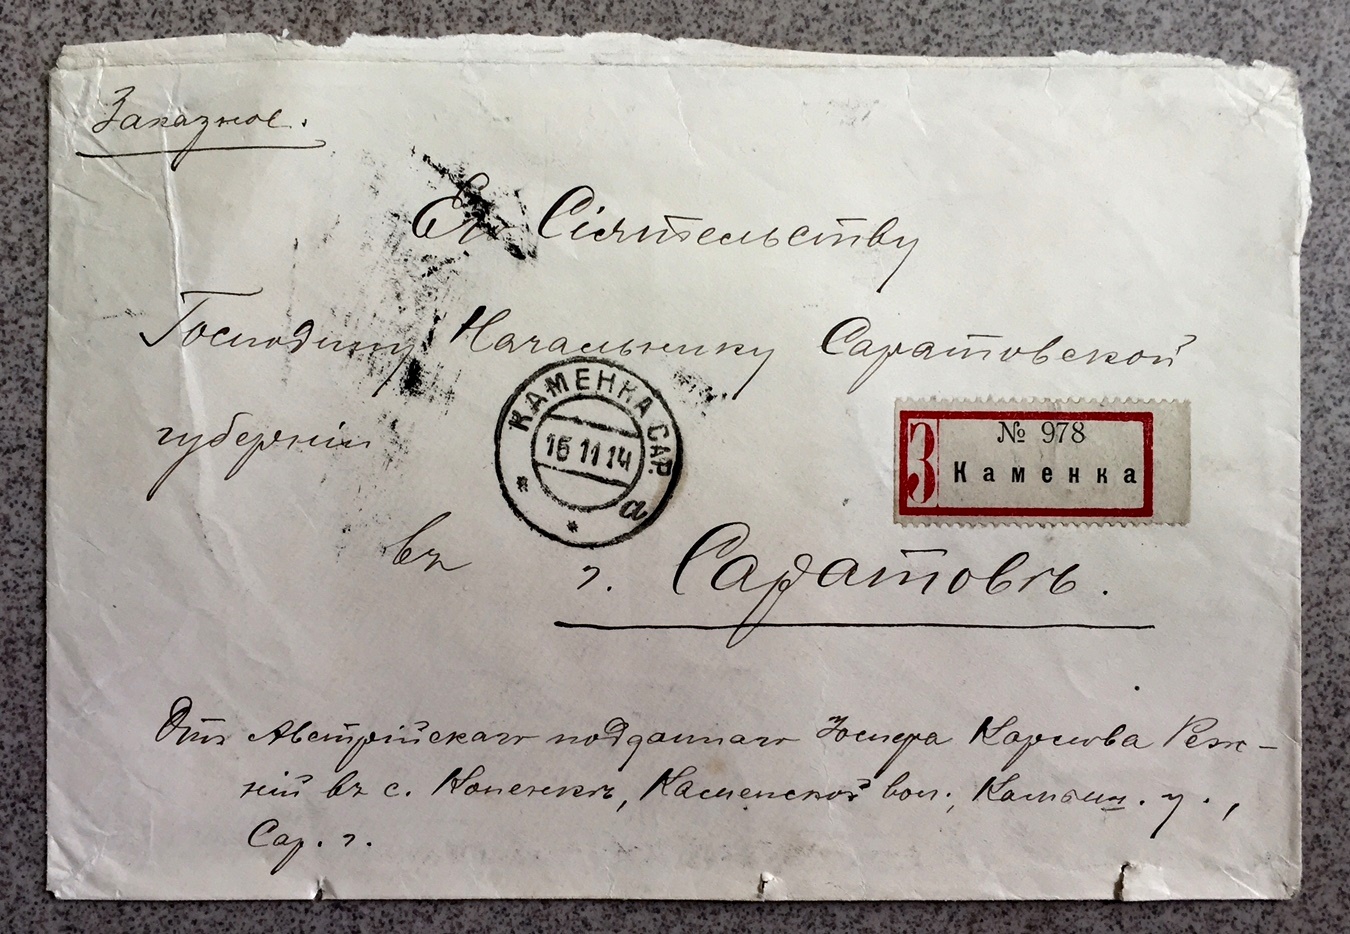 Заказное.
Его Сіятельству
Господину Начальнику Саратовской
губерніи
КАМЕНКА САР.
15 11 14
а
З
№ 978
Каменка
въ г. Саратовѣ.
Отъ Австрійскаго подданнаго Іосифа Карлова
ній въ с. Каменкѣ, Каменской вол., Камыш. у.,
Сар. г.